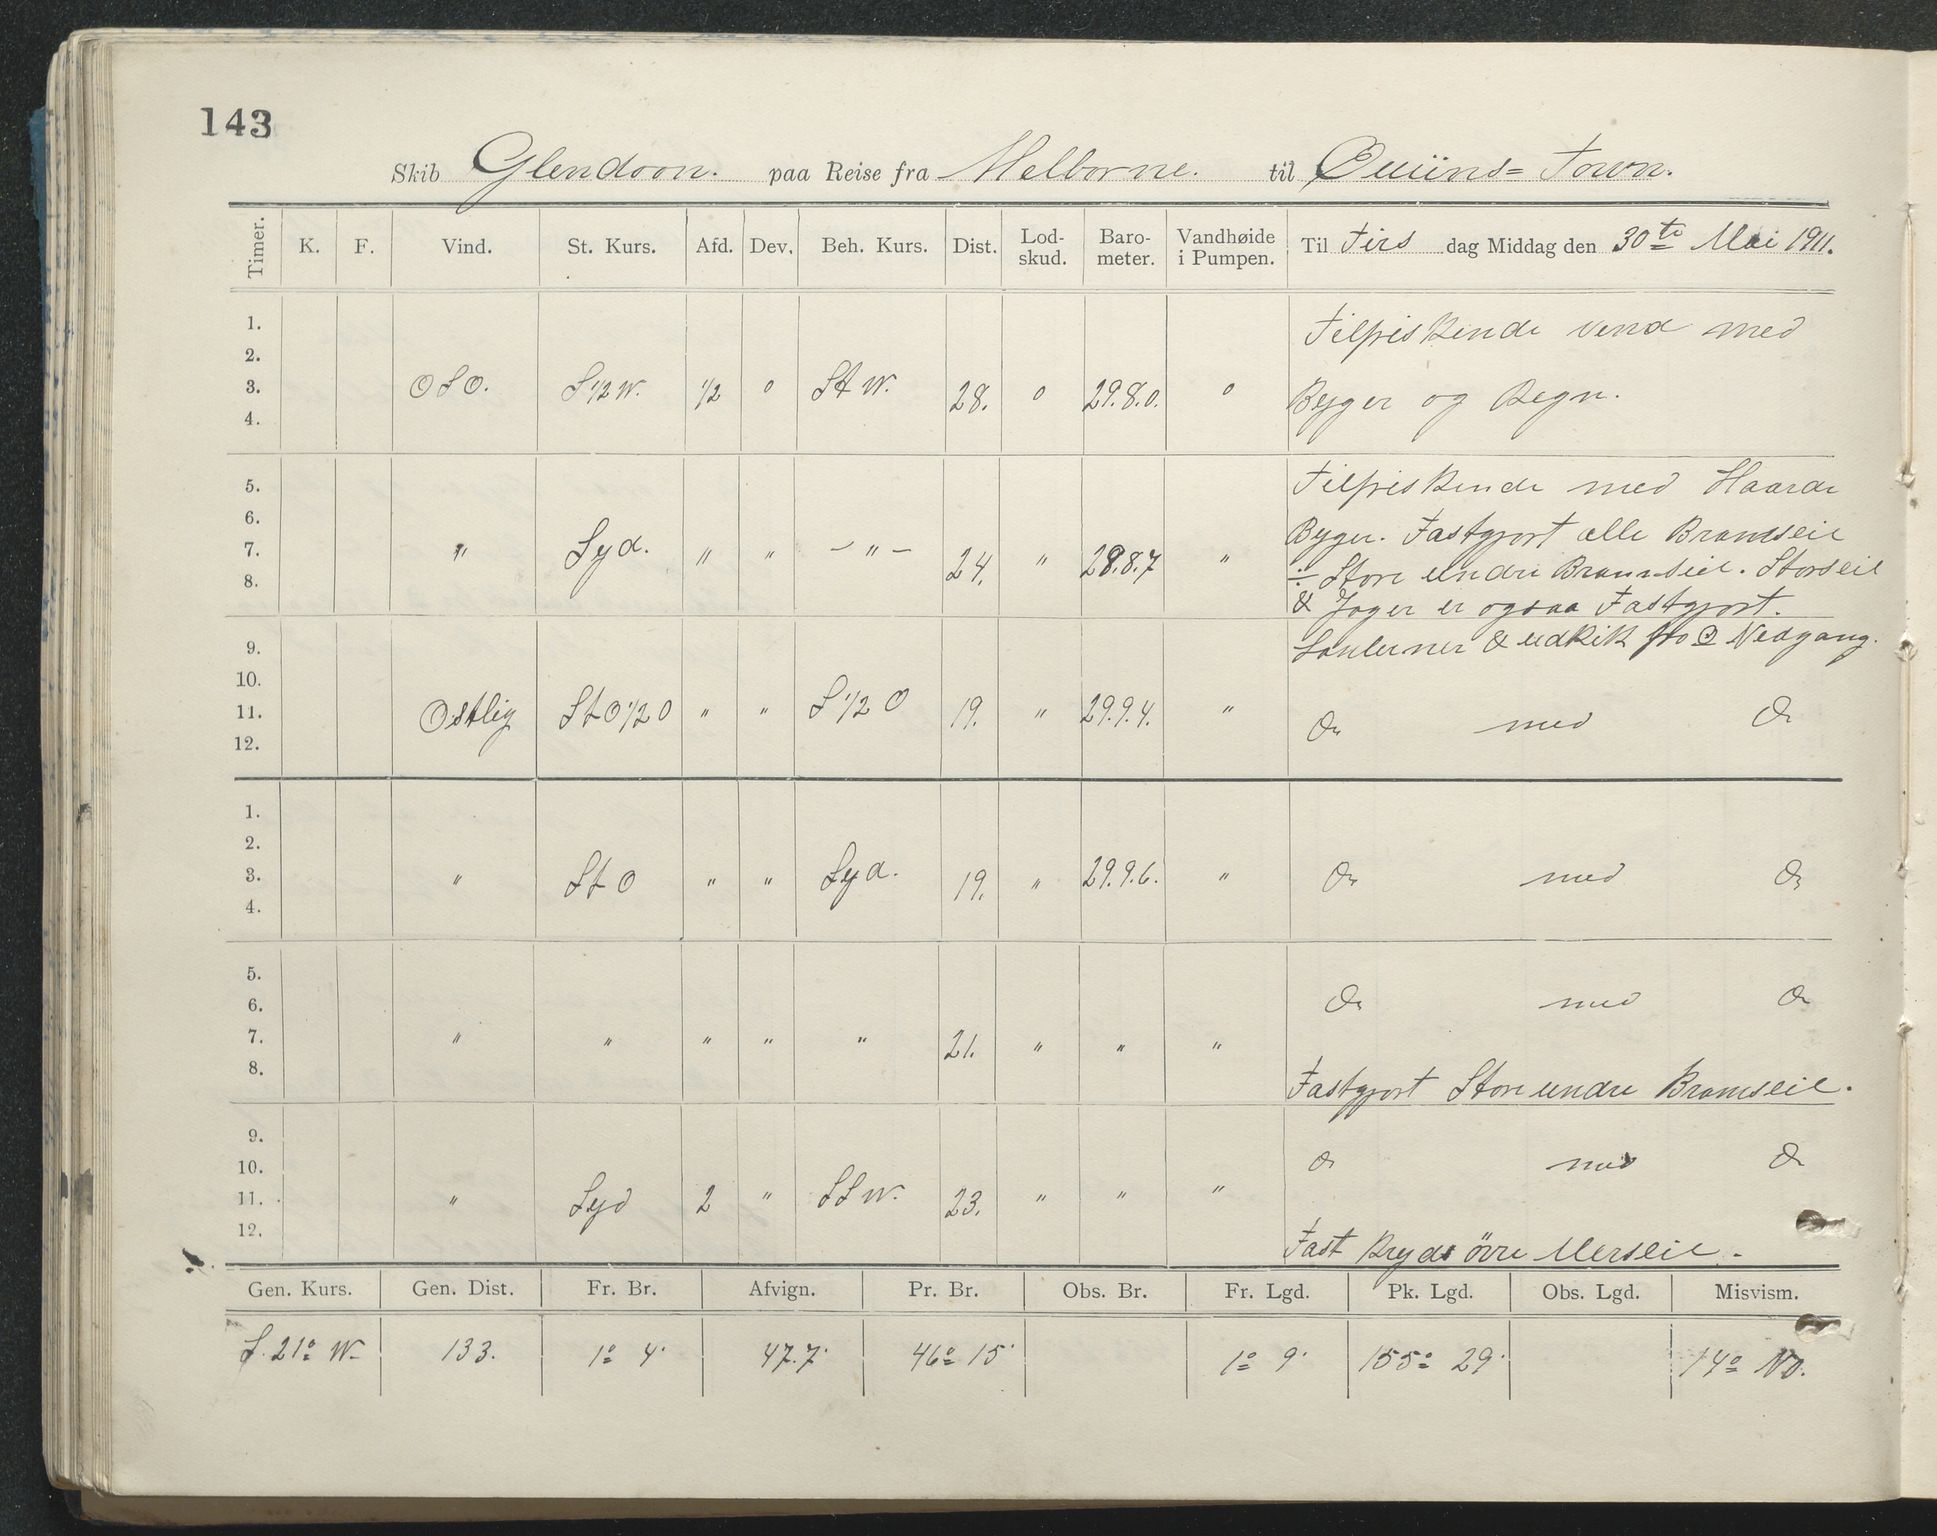 143
Skib Glendoon. paa Reise fra Melborne. til Quiins= Town.
Timer. K. F. Vind. St. Kurs. Afd. Dev. Beh. Kurs. Dist. Lod-skud. Baro-meter. Vandhøide i Pumpen. Til Tirs dag Middag den 30te Mai 1911.
1. Tilfriskende vind med
2.
3. OSO. S 1/2 W. 1/2 o St W. 28. o 29.8.0. o Byger og Regn.
4.
5. Tilfriskende med Haarde
6. Byger. Fastgjort alle Bramseil
7. " Syd. " " – " – 24. " 28.8.7 " ÷ Store undre Bramseil. Storseil
8. & Jager er ogsaa Fastgjort.
9. Lanterner & udkik fra ☉ Nedgang.
10.
11. Ostlig St O 1/2 O " " S 1/2 O 19. " 29.9.4. " Do med Do
12.
1.
2.
3. " St O " " Syd. 19. " 29.9.6. " Do med Do
4.
5.
6. Do med Do
7. " " " " " 21. " " "
8. Fastgjort Store undre Bramseil.
9.
10. Do med Do
11. " Syd 2 " SSW. 23. " " "
12. Fast Kryds övre Merseil.
Gen. Kurs. Gen. Dist. Fr. Br. Afvign. Pr. Br. Obs. Br. Fr. Lgd. Pk. Lgd. Obs. Lgd. Misvism.
S. 21° W. 133. 1° 4' 47.7' 46° 15' 1° 9' 155° 29' 14° NO.